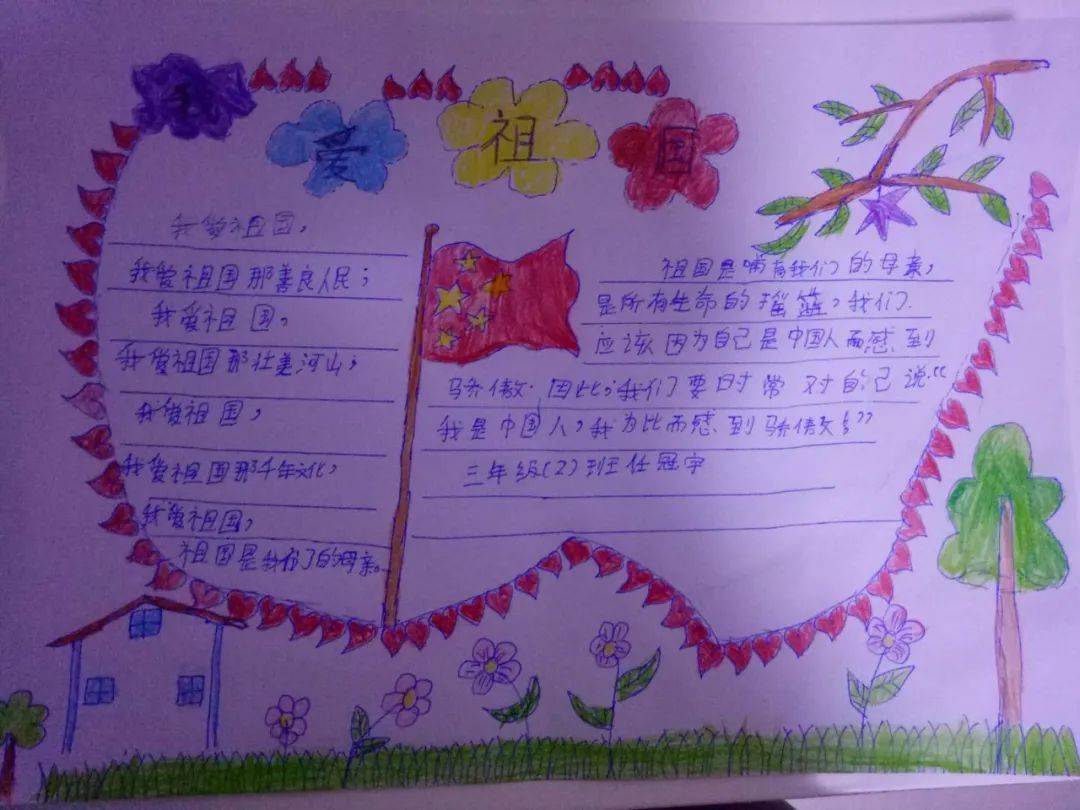 爱祖国
我爱祖国,
我爱祖国那善良人民;
我爱祖国,
我爱祖国那壮美河山;
我爱祖国,
我爱祖国那千年文化,
我爱祖国,
祖国是我们的母亲。
祖国是哺育我们的母亲,
是所有生命的摇篮,我们
应该因为自己是中国人而感到
骄傲.因此,我们要时常对自己说“
我是中国人,我为此而感到骄傲”
三年级(2)班任冠宇